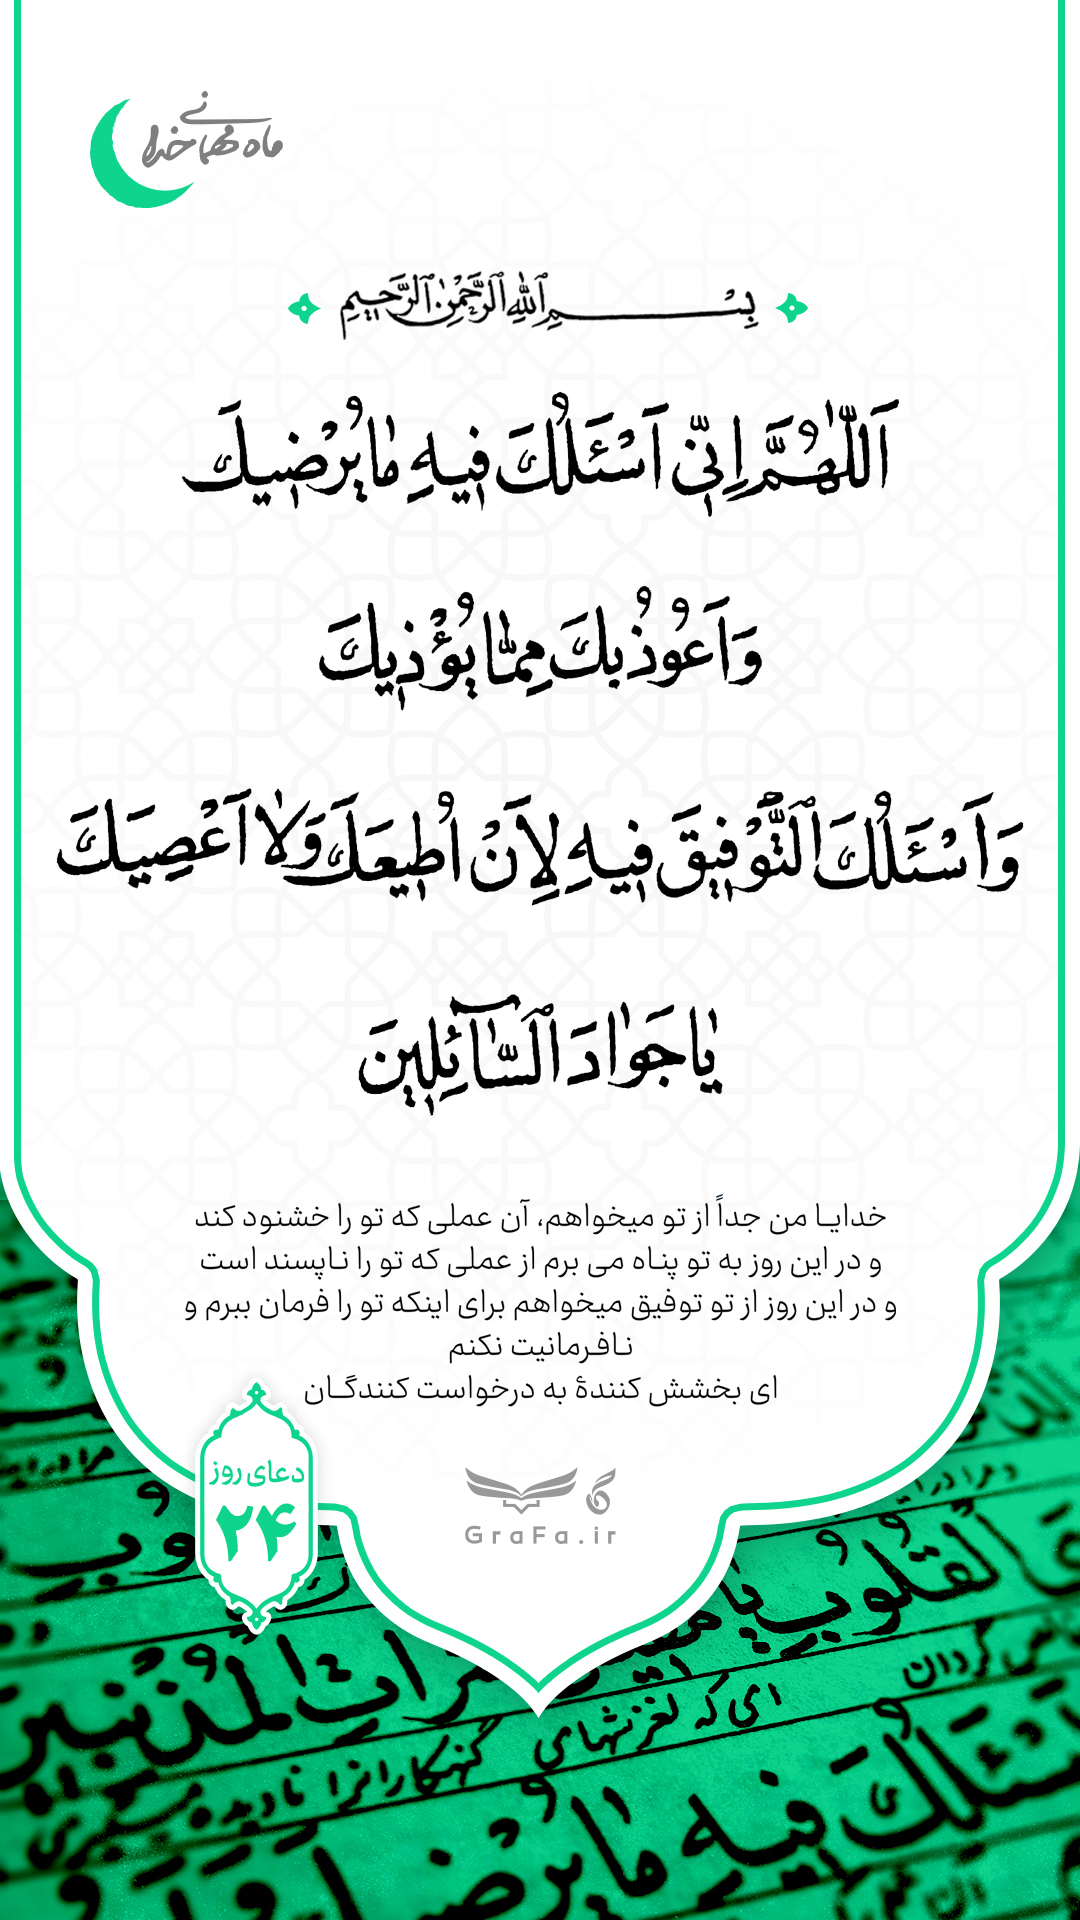 ماه مهمانی خدا
بِسْمِ ٱللّٰهِ ٱلرَّحْمٰنِ ٱلرَّحيمِ
اَللّٰهُمَّ اِنّي اَسْئَلُكَ فيهِ مٰا يُرْضيكَ
وَ اَعُوذُ بِكَ مِمّٰا يُؤْذيكَ
وَ اَسْئَلُكَ ٱلتَّوْفيقَ فيهِ لِاَنْ اُطيعَكَ وَلٰا اَعْصِيَكَ
يٰا جَوٰادَ ٱلسّٰآئِلينَ
خدایا من جداً از تو میخواهم، آن عملی که تو را خشنود کند
و در این روز به تو پناه می برم از عملی که تو را ناپسند است
و در این روز از تو توفیق میخواهم برای اینکه تو را فرمان ببرم و
نافرمانیت نکنم
ای بخشش کنندهٔ به درخواست کنندگان
دعای روز
۲۴
GraFa.ir
القلوب يا
گردان
المذنبين
ای که لغزشهای گنهکارانرا نادیده
فيه ما يرضي